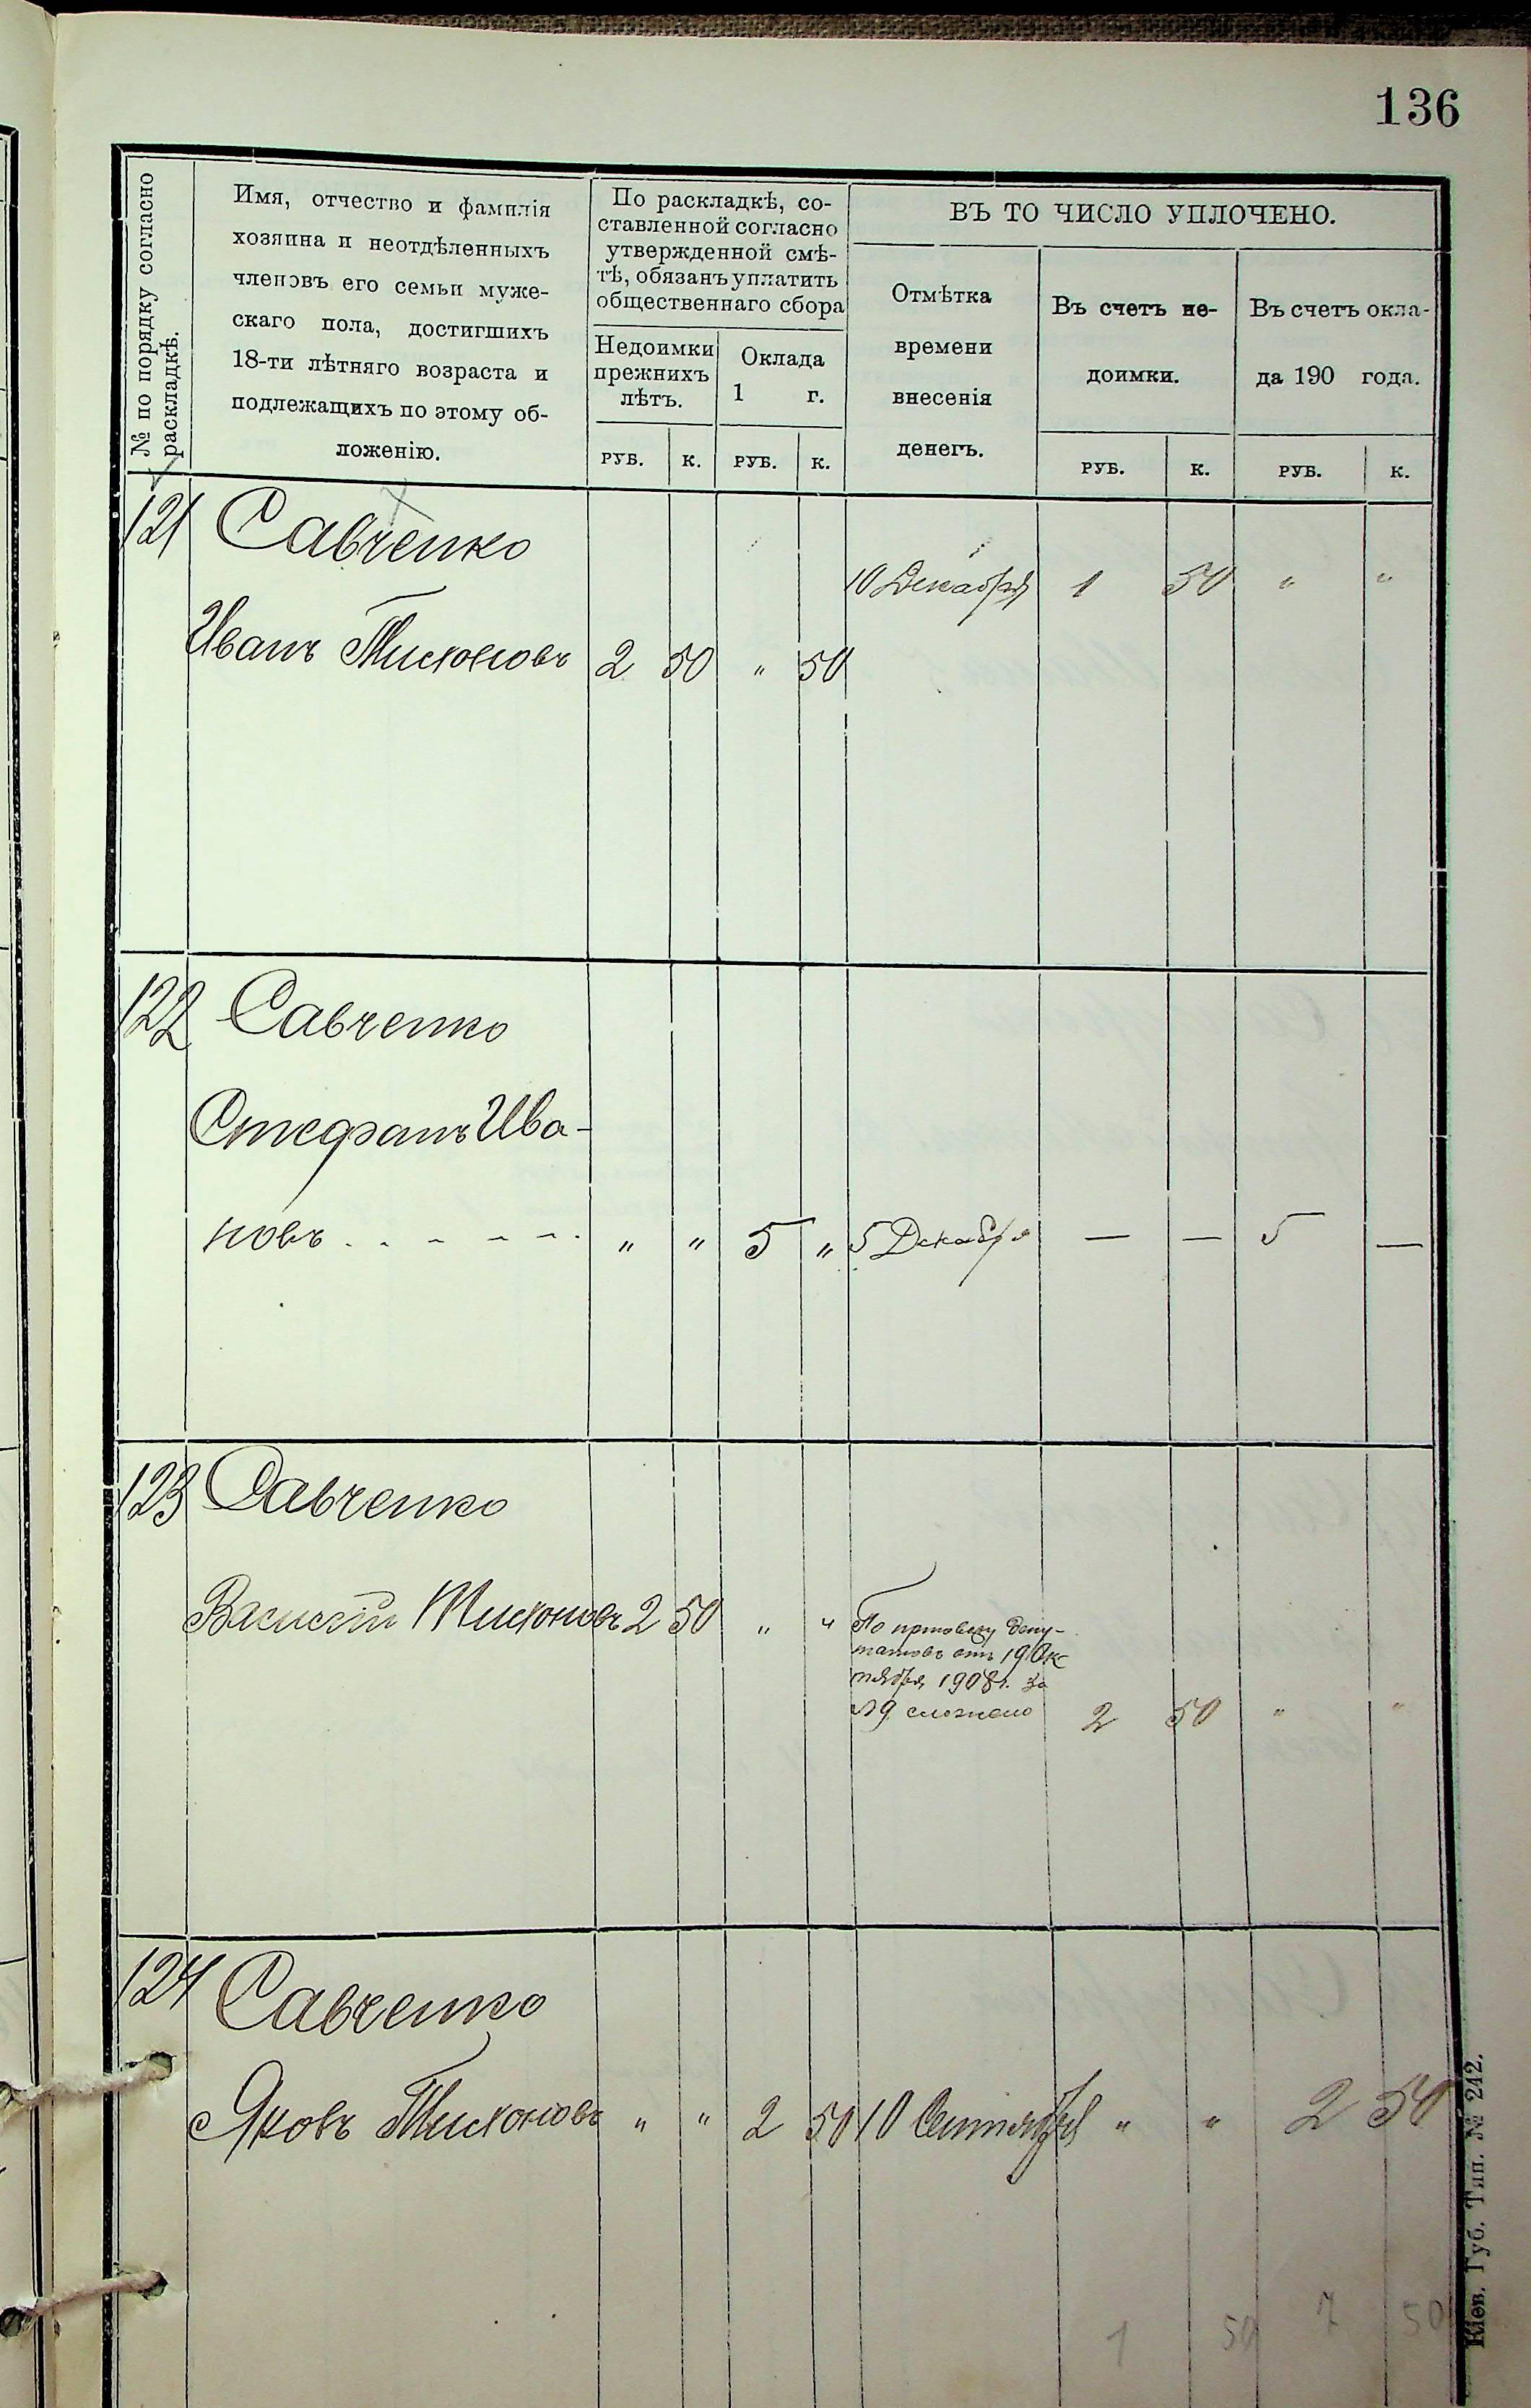 136
№ по порядку согласно
раскладкѣ.
Имя, отчество и фамилія
хозяина и неотдѣленныхъ
членовъ его семьи муже-
скаго пола, достигшихъ
18-ти лѣтняго возраста и
подлежащихъ по этому об-
ложенію.
По раскладкѣ, со-
ставленной согласно
утвержденной смѣ-
тѣ, обязанъ уплатить
общественнаго сбора
Недоимки
прежнихъ
лѣтъ.
Оклада
1 г.
ВЪ ТО ЧИСЛО УПЛОЧЕНО.
Отмѣтка
времени
внесенія
денегъ.
Въ счетъ не-
доимки.
Въ счетъ окла-
да 190 года.
РУБ. К. РУБ. К. РУБ. К. РУБ. К.
121 Савченко
10 Декабря 1 50 " "
Иванъ Тихоновъ 2 50 " 50
122 Савченко
Стефанъ Ива-
новъ . . - - - - . " " 5 " 5 Декабря — — 5 —
123 Савченко
Василій Тихоновъ 2 50 " " По приговору депу-
татовъ отъ 19 Ок
тября 1908 г. за
№ 9 сложено 2 50 " "
124 Савченко
Яковъ Тихоновъ " " 2 50 10 Сентября " " 2 50
1 50 7 50
Кіев. Губ. Тип. № 242.